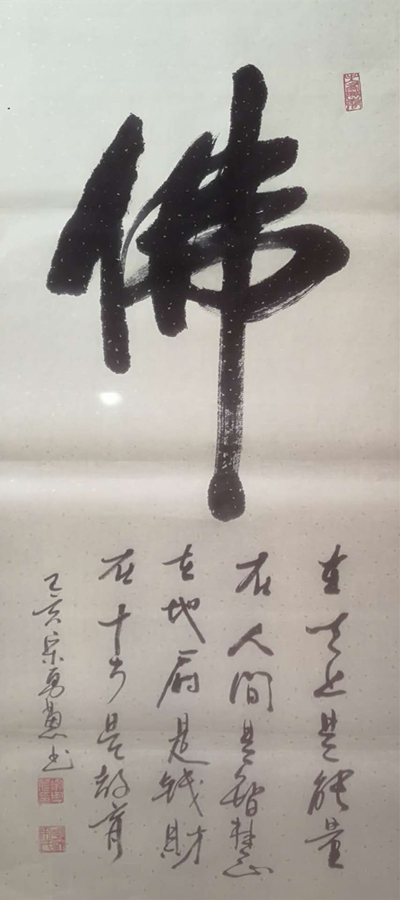 佛
在天上是能量
在人間是智慧
在地府是錢財
在十方是教育
己亥宋勇書